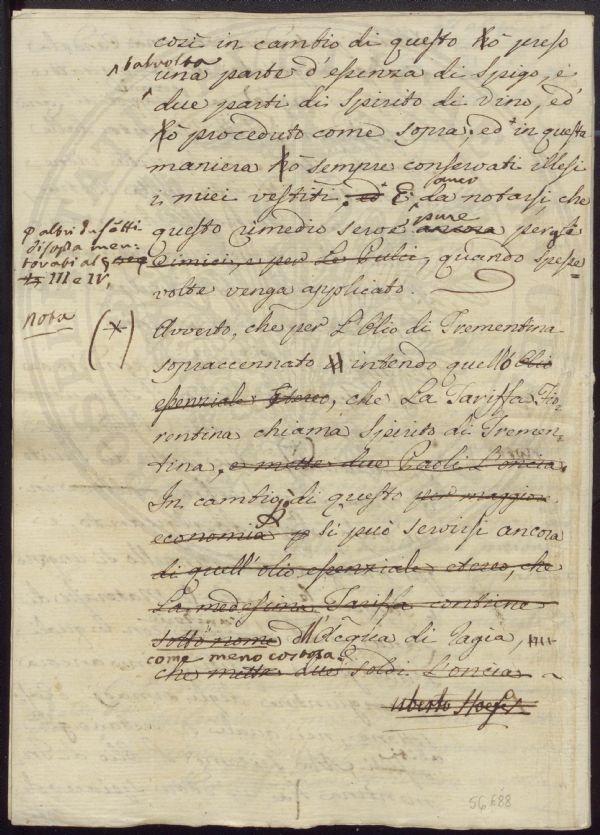 così in cambio di questo hò preso
^talvolta
una parte d'essenza di Spigo, e
due parti di Spirito di Vino, ed
hò proceduto come sopra; ed in questa
maniera hò sempre conservati illesi
i miei vestiti. ed E: da notarsi che
anco
questo rimedio serve ancora per
pure
Cimici, e per Le Pulci, quando spesse
volte venga applicato.
di sopra men-
tovati al
III e IV,
Nota
(*) Avverto, che per L'Olio di Trementina
sopraccennato intendo quello Olio
essenziale etereo, che La Tariffa Fio-
rentina chiama Spirito di Tremen-
tina, e mette due Paoli L'oncia.
In cambio di questo per maggior
economia si può servirsi ancora
di quell'olio essenziale etereo, che
La medesima Tariffa contiene
sotto nome d'Acqua di Ragia,
come meno costosa
che mette due Soldi L'oncia
Uberto Hoefer
56688